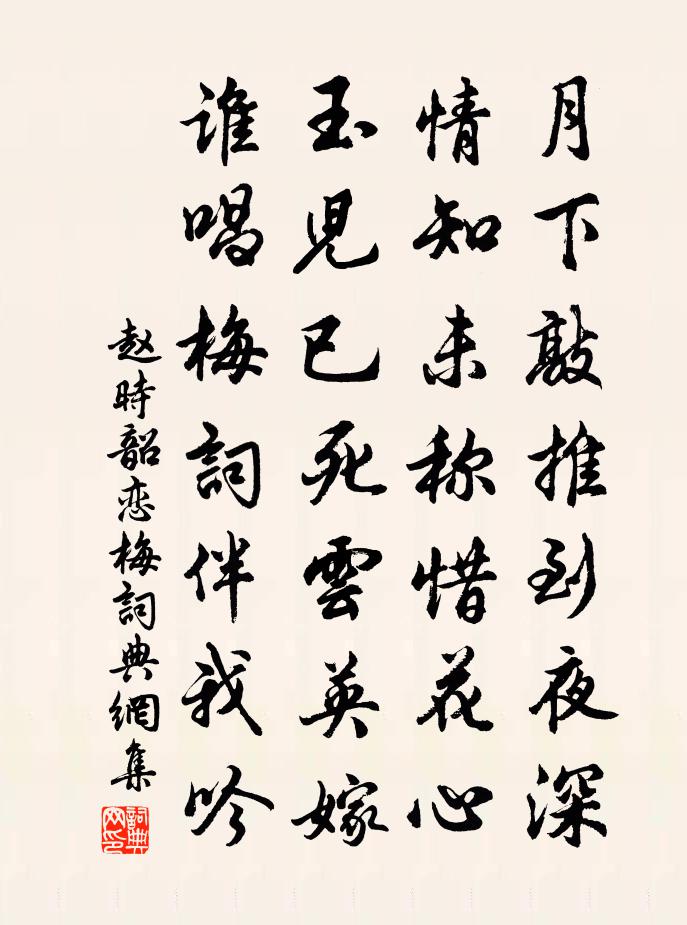 月下敲推到夜深
情知未称惜花心
玉児已死雲英嫁
誰唱梅詞伴我吟
赵時韶恋梅詞典網集
詞典网印